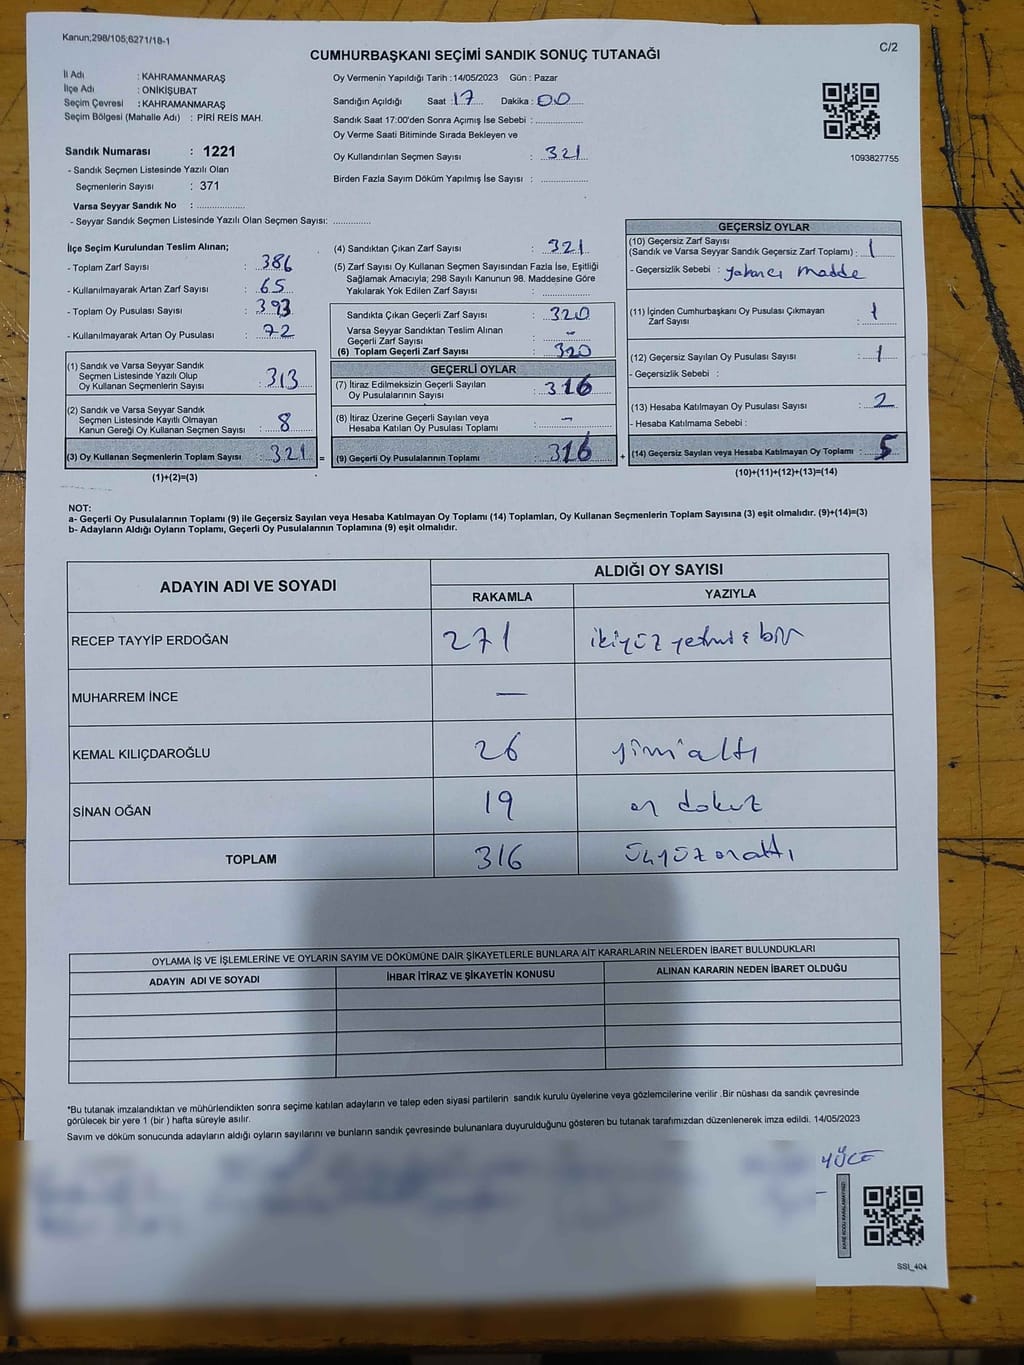 Kanun;298/105;6271/18-1
C/2
CUMHURBAŞKANI SEÇİMİ SANDIK SONUÇ TUTANAĞI
İl Adı : KAHRAMANMARAŞ
İlçe Adı : ONİKİŞUBAT
Seçim Çevresi : KAHRAMANMARAŞ
Seçim Bölgesi (Mahalle Adı) : PİRİ REİS MAH.
Sandık Numarası : 1221
- Sandık Seçmen Listesinde Yazılı Olan
Seçmenlerin Sayısı : 371
Varsa Seyyar Sandık No : ..................
- Seyyar Sandık Seçmen Listesinde Yazılı Olan Seçmen Sayısı: ..............
Oy Vermenin Yapıldığı Tarih : 14/05/2023 Gün : Pazar
Sandığın Açıldığı Saat : 17 Dakika : 00
Sandık Saat 17:00'den Sonra Açımış İse Sebebi : ..................
Oy Verme Saati Bitiminde Sırada Bekleyen ve
Oy Kullandırılan Seçmen Sayısı : 321
Birden Fazla Sayım Döküm Yapılmış İse Sayısı : ..................
1093827755
İlçe Seçim Kurulundan Teslim Alınan;
- Toplam Zarf Sayısı : 386
- Kullanılmayarak Artan Zarf Sayısı : 65
- Toplam Oy Pusulası Sayısı : 393
- Kullanılmayarak Artan Oy Pusulası : 72
(1) Sandık ve Varsa Seyyar Sandık
Seçmen Listesinde Yazılı Olup
Oy Kullanan Seçmenlerin Sayısı : 313
(2) Sandık ve Varsa Seyyar Sandık
Seçmen Listesinde Kayıtlı Olmayan
Kanun Gereği Oy Kullanan Seçmen Sayısı : 8
(3) Oy Kullanan Seçmenlerin Toplam Sayısı : 321 =
(1)+(2)=(3)
(4) Sandıktan Çıkan Zarf Sayısı : 321
(5) Zarf Sayısı Oy Kullanan Seçmen Sayısından Fazla İse, Eşitliği
Sağlamak Amacıyla; 298 Sayılı Kanunun 98. Maddesine Göre
Yakılarak Yok Edilen Zarf Sayısı : ..................
Sandıkta Çıkan Geçerli Zarf Sayısı : 320
Varsa Seyyar Sandıktan Teslim Alınan
Geçerli Zarf Sayısı : -
(6) Toplam Geçerli Zarf Sayısı : 320
GEÇERLİ OYLAR
(7) İtiraz Edilmeksizin Geçerli Sayılan
Oy Pusulalarının Sayısı : 316
(8) İtiraz Üzerine Geçerli Sayılan veya
Hesaba Katılan Oy Pusulaları Toplamı : -
(9) Geçerli Oy Pusulalarının Toplamı : 316 +
GEÇERSİZ OYLAR
(10) Geçersiz Zarf Sayısı
(Sandık ve Varsa Seyyar Sandık Geçersiz Zarf Toplamı) : 1
- Geçersizlik Sebebi : yabancı madde
(11) İçinden Cumhurbaşkanı Oy Pusulası Çıkmayan
Zarf Sayısı : 1
(12) Geçersiz Sayılan Oy Pusulası Sayısı : 1
- Geçersizlik Sebebi :
(13) Hesaba Katılmayan Oy Pusulası Sayısı : 2
- Hesaba Katılmama Sebebi :
(14) Geçersiz Sayılan veya Hesaba Katılmayan Oy Toplamı : 5
(10)+(11)+(12)+(13)=(14)
NOT:
a- Geçerli Oy Pusulalarının Toplamı (9) ile Geçersiz Sayılan veya Hesaba Katılmayan Oy Toplamı (14) Toplamları, Oy Kullanan Seçmenlerin Toplam Sayısına (3) eşit olmalıdır. (9)+(14)=(3)
b- Adayların Aldığı Oyların Toplamı, Geçerli Oy Pusulalarının Toplamına (9) eşit olmalıdır.
ADAYIN ADI VE SOYADI ALDIĞI OY SAYISI
RAKAMLA YAZIYLA
RECEP TAYYİP ERDOĞAN 271 ikiyüz yetmiş bir
MUHARREM İNCE —
KEMAL KILIÇDAROĞLU 26 yirmi altı
SİNAN OĞAN 19 on dokuz
TOPLAM 316 üçyüz onaltı
OYLAMA İŞ VE İŞLEMLERİNE VE OYLARIN SAYIM VE DÖKÜMÜNE DAİR ŞİKAYETLERLE BUNLARA AİT KARARLARIN NELERDEN İBARET BULUNDUKLARI
ADAYIN ADI VE SOYADI İHBAR İTİRAZ VE ŞİKAYETİN KONUSU ALINAN KARARIN NEDEN İBARET OLDUĞU
*Bu tutanak imzalandıktan ve mühürlendikten sonra seçime katılan adayların ve talep eden siyasi partilerin sandık kurulu üyelerine veya gözlemcilerine verilir .Bir nüshası da sandık çevresinde
görülecek bir yere 1 (bir ) hafta süreyle asılır.
Sayım ve döküm sonucunda adayların aldığı oyların sayılarını ve bunların sandık çevresinde bulunanlara duyurulduğunu gösteren bu tutanak tarafımızdan düzenlenerek imza edildi. 14/05/2023
YÜCE
KARE KODU KARALAMAYINIZ!
SSİ_404